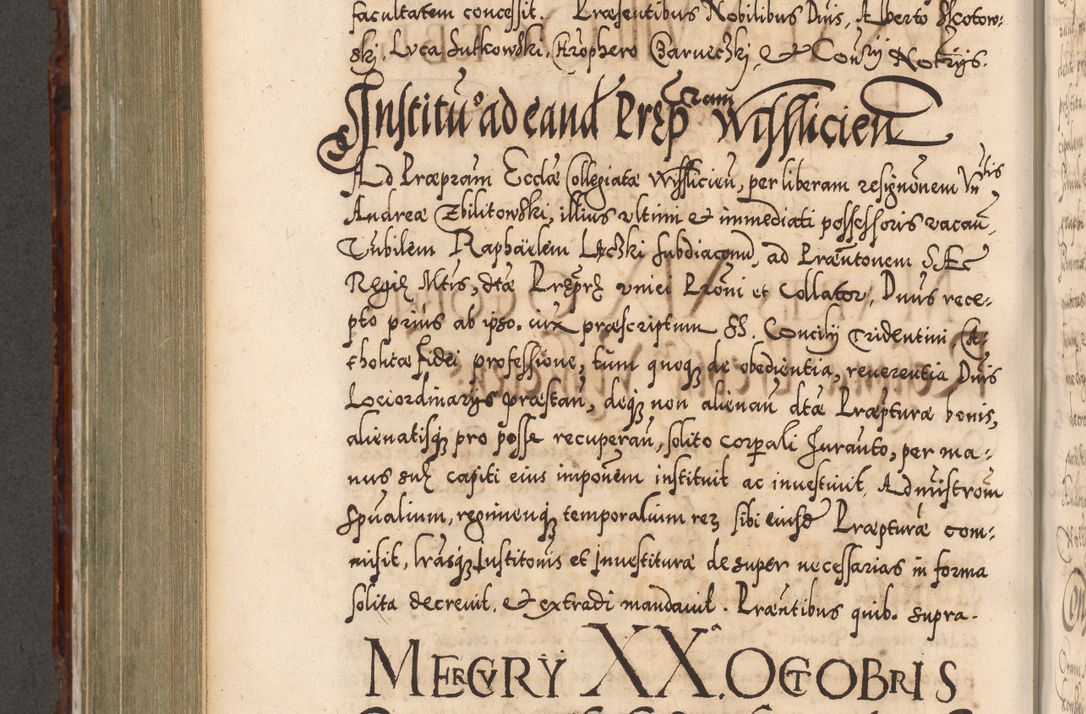 facultatem concessit. Præsentibus Nobilibus Dnis, Alberto Skotow:
ski, Luca Sutkowski, Xrophero Czarneczki, et Con Notrijs.
Institu° ad eand Præp Wisslicien
Ad Præpram Eccłæ Collegiatæ Wisslicien, per liberam resignonem Vnblis
Andreæ Zbilitowski, illius vltimi et immediati possessoris vacan,
Nubilem Raphaëlem subdiaconū, ad Præntonem S.
Regiæ Mtis, dtæ vnici Proni et Collator, Dnus rece:
pto prius ab ipso, iux præscriptum SS. Concilij Tridentini, Ca:
tholicæ fidei professione, tum quoq de obedientia, reuerentia Dnis
Lociordinarijs præstan, deq non alienan dtæ Præpturæ bonis,
alienatisq pro posse recuperan, solito corpali Juranto, per ma:
nus suæ capiti eius imponem instituit ac inuestiuit. Admistrom
spualium, regimenq temporalium rerz sibi eiusd Præpturæ com:
misit, lrasq Institonis et Inuestituræ desuper necessarias in forma
solita decreuit, et extradi mandauit. Præntibus quib. supra.
MERCVRY XXᵃ. OCTOBRIS